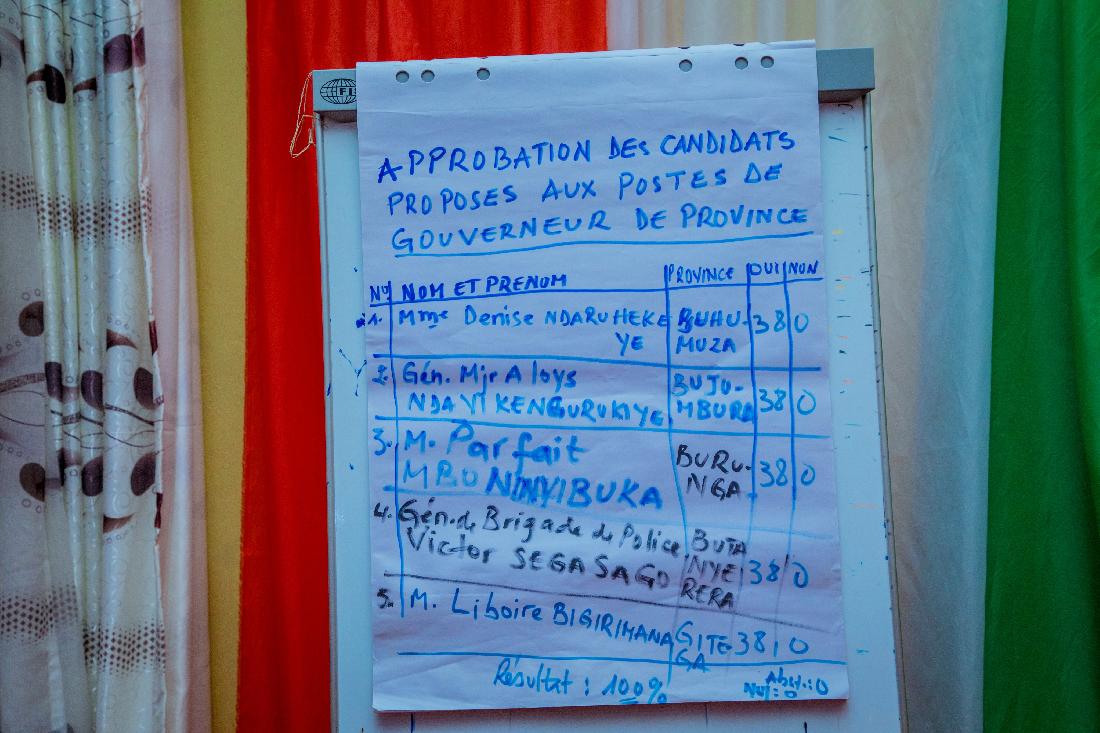 APPROBATION DES CANDIDATS
PROPOSES AUX POSTES DE
GOUVERNEUR DE PROVINCE
No NOM ET PRENOM PROVINCE OUI NON
1. Mme Denise NDARUHEKE BUHU- 38 0
YE MUZA
2. Gén. Mjr Aloys BUJU-
NDAYIKENGURUKIYE MBURA 38 0
3. M. Parfait BURU-
MBONINYIBUKA NGA 38 0
4. Gén. de Brigade de Police BUTA
Victor SEGASAGO NYE 38 0
RERA
5. M. Liboire BIGIRIMANA GITE 38 0
GA
Résultat : 100% Abst.: 0
Nul: 0